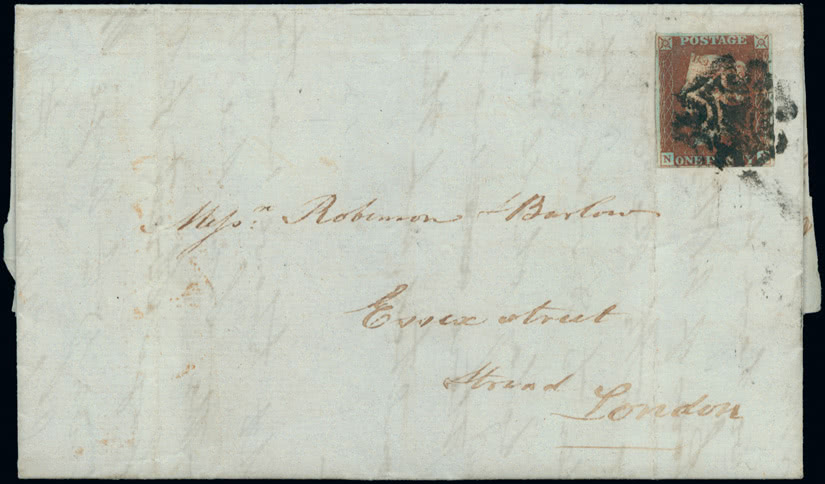 POSTAGE
N ONE P
Messrs Robinson & Barlow
Essex street
Strand
London